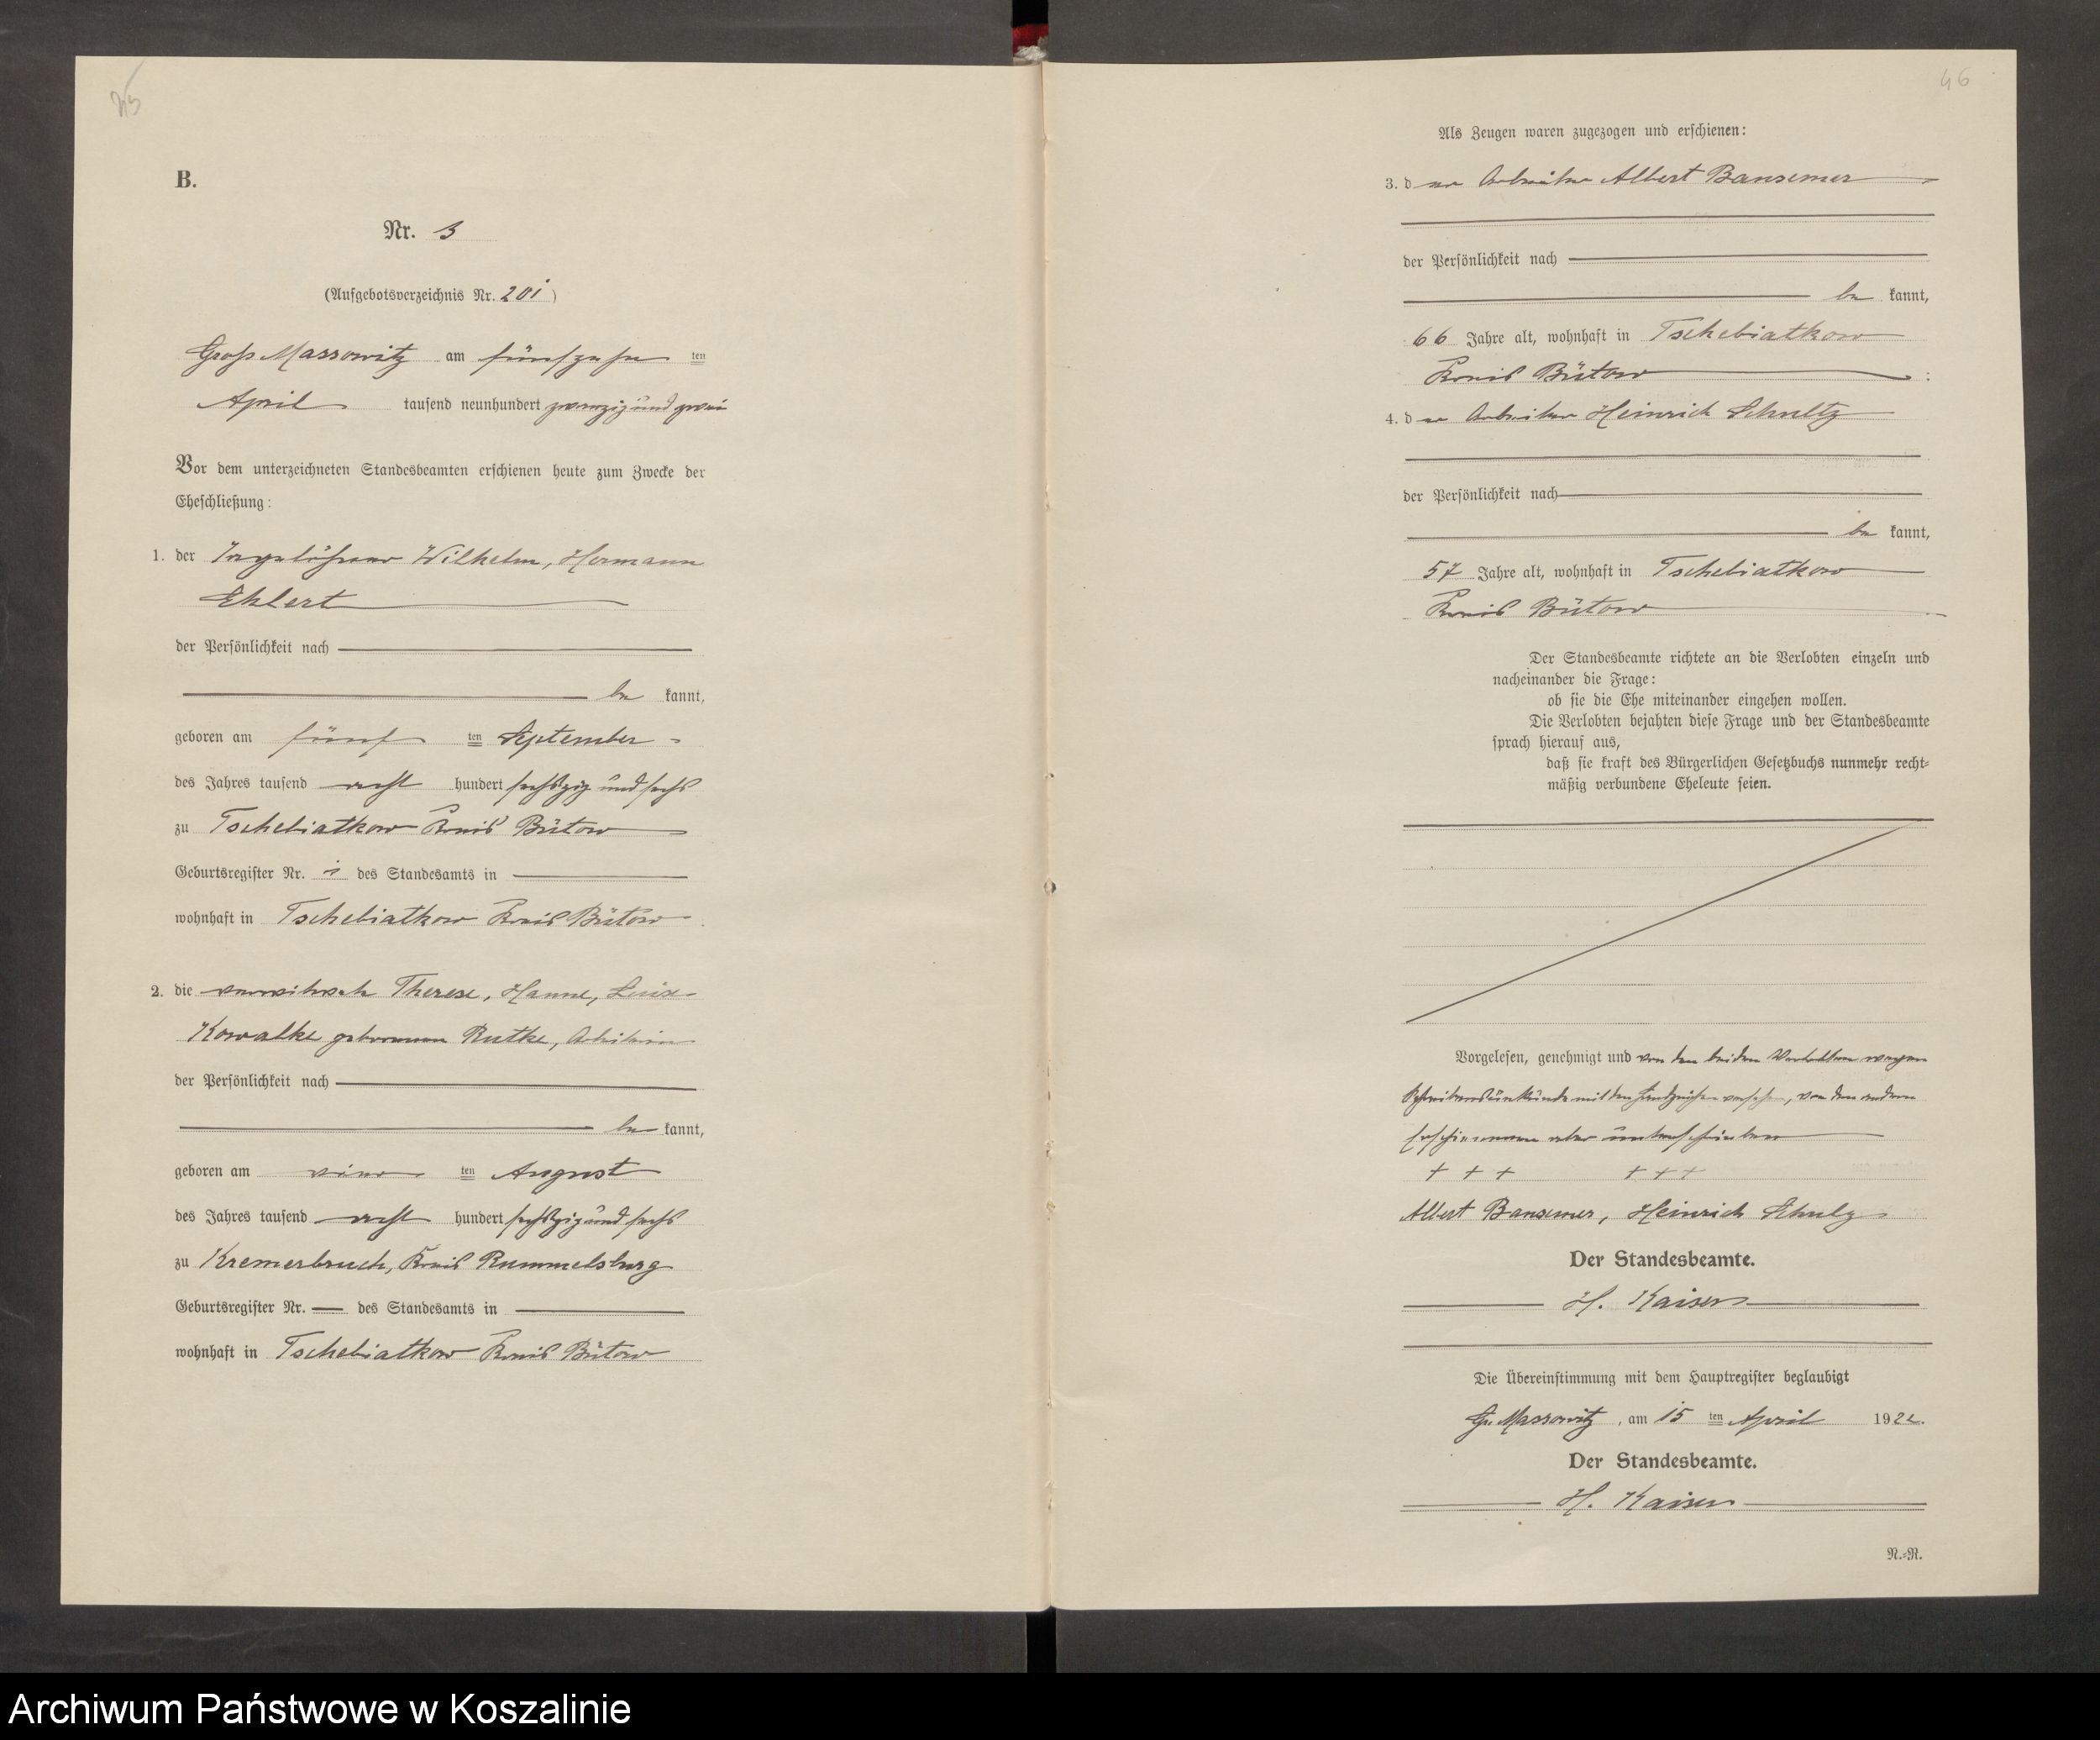 B.
Nr. 3
(Aufgebotsverzeichnis Nr. 201)
Groß Massowitz am fünfzehn ten
April tausend neunhundert zwanzig und zwei
Vor dem unterzeichneten Standesbeamten erschienen heute zum Zwecke der
Eheschließung:
1. der Tagelöhner Wilhelm, Hermann
Ehlert
der Persönlichkeit nach
be kannt,
geboren am fünf ten September
des Jahres tausend acht hundert sechszig und sechs
zu Tschebiatkow Kreis Bütow
Geburtsregister Nr. des Standesamts in
wohnhaft in Tschebiatkow Kreis Bütow
2. die verwitwete Therese, Hanne, Luise
Kowalke geborenen Rutke, Arbeiterin
der Persönlichkeit nach
be kannt,
geboren am ten August
des Jahres tausend acht hundert sechszig und sechs
zu Kremerbruch, Kreis Rummelsburg
Geburtsregister Nr. — des Standesamts in
wohnhaft in Tschebiatkow Kreis Bütow
46
Als Zeugen waren zugezogen und erschienen:
3. d er Arbeiter Albert Bansemer
der Persönlichkeit nach
be kannt,
66 Jahre alt, wohnhaft in Tschebiatkow
Kreis Bütow :
4. d er Arbeiter Heinrich Schultz
der Persönlichkeit nach
be kannt,
57 Jahre alt, wohnhaft in Tschebiatkow
Kreis Bütow
Der Standesbeamte richtete an die Verlobten einzeln und
nacheinander die Frage:
ob sie die Ehe miteinander eingehen wollen.
Die Verlobten bejahten diese Frage und der Standesbeamte
sprach hierauf aus,
daß sie kraft des Bürgerlichen Gesetzbuchs nunmehr recht-
mäßig verbundene Eheleute seien.
Vorgelesen, genehmigt und von den beiden Verlobten wegen
Schreibensunkunde mit den Handzeichen versehen, von den andern
Erschienenen aber unterschrieben
+ + + + + +
Albert Bansemer, Heinrich Schulz
Der Standesbeamte.
H. Kaiser
Die Übereinstimmung mit dem Hauptregister beglaubigt
Gr. Massowitz, am 15 ten April 1922.
Der Standesbeamte.
H. Kaiser
N.=R.
Archiwum Państwowe w Koszalinie